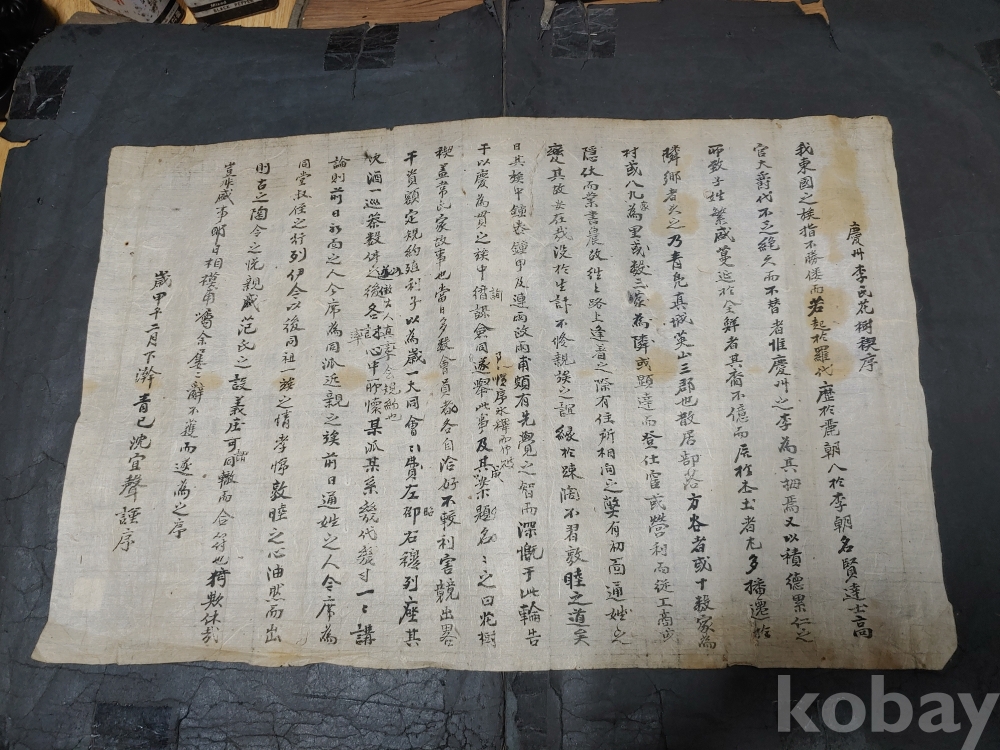 慶州李氏花樹稧序
我東國之族指不勝僂而若起於羅代歷於麗朝入於李朝名賢達士高
官大爵代不乏絶久而不替者惟慶州之李為其拇焉又以積德累仁之
所致子姓繁盛蔓延於全鮮者其麗不億而居於本土者尤多播遷於
隣鄉者久之乃青鳧真城英山三郡也散居部落方谷者或十數家為
村或八九家為里或數三家為隣或顯達而登仕宦或營利而從工商或
隱伏而業書農故往上路上逢着之際有住所相問之獘有初面通姓之
變其故安在哉沒於生計不修親族之誼緣於疎濶不習敦睦之道矣
日其族中鍾泰鍾甲及連雨改雨甫頗有先覺之智而深慨于此輪告
于以慶為貫之族中僭謀詢僉同遂舉此事及其案題名名之曰花樹
稧盖韋氏家故事也當日多數會員都各自洽好不較利害競出畧
干資額定規約殖剖子以為歲一大同會會費左卻昭右穆列座其
飲酒一巡祭數件後各討心中所懷某派某系幾代幾寸一一講
論則前日初面之人今席為同派近親之族前日通姓之人今席為
同堂叔侄之行列伊今以後同祖一族之情孝悌敦睦之心油然而出
則古之陶令之悅親戚范氏之設義庄可謂同轍而合符也猗歟休哉
宣集盛事附日相模甫屬余為辭不獲而遂為之序
歲甲午二月下澣青己沈宜聲謹序
kobay